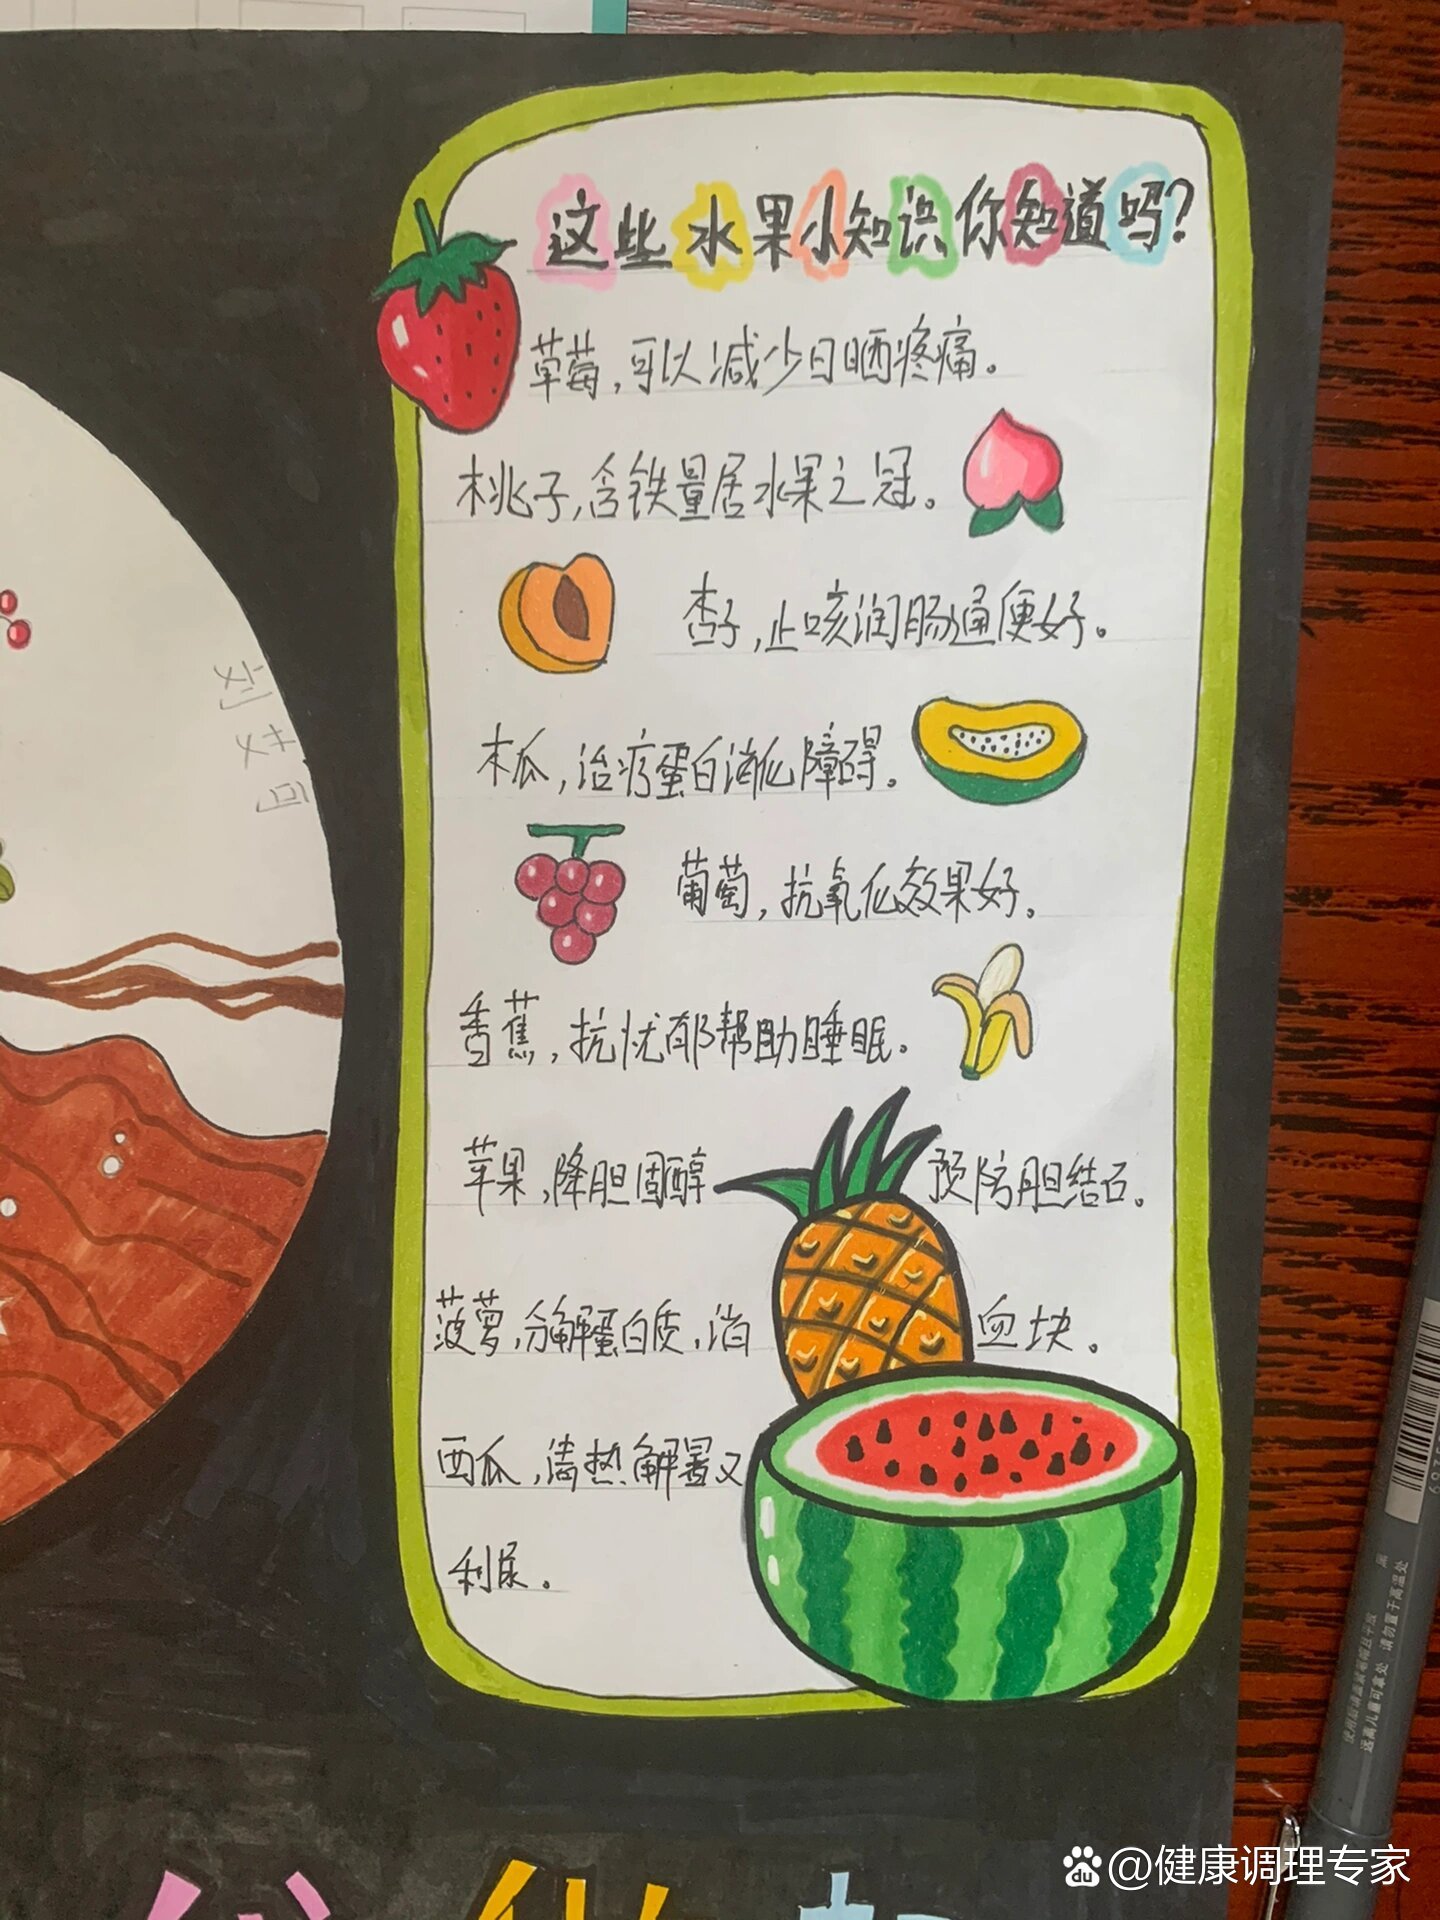 这些水果小知识你知道吗?
草莓,可以减少日晒疼痛。
桃子,含铁量居水果之冠。
杏子,止咳润肠通便好。
木瓜,治疗蛋白消化障碍。
葡萄,抗氧化效果好。
香蕉,抗忧郁帮助睡眠。
苹果,降胆固醇 预防胆结石。
菠萝,分解蛋白质,消 血块。
西瓜,清热解暑又
利尿。
使用后请盖紧笔帽且平放
远离儿童可拿处 请勿置于高温处
@健康调理专家